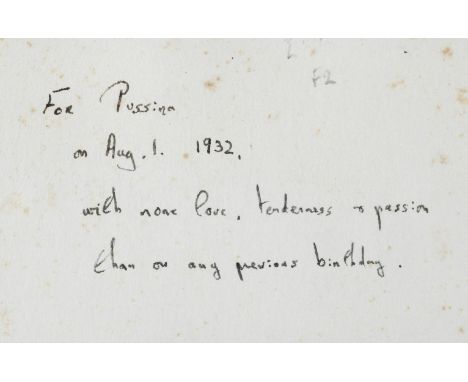 F2
For Pussina
on Aug. 1. 1932.
with more love, tenderness & passion
than on any previous birthday.